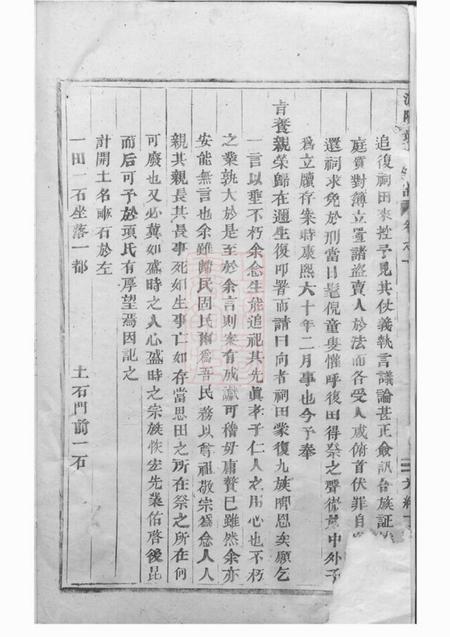 追復祠田來控予見其仗義執言議論甚正僉訊合族証
庭質對簿立置諸盜賣人於法而各受人咸俯首伏罪自
還祠求免於刑當日髦倪童叟懽呼復田得祭之聲徹中外予
爲立牘存案時康熙六十年二月事也今予奉
肯養親榮歸在邇生復叩署而請曰向者祠田業復九族啣恩矣願乞
一言以垂不朽余念生能追祀其先眞孝子仁人之用心也不朽
之業孰大於是至於余言則案有成讞可稽毋庸贊巳雖然余亦
安能無言也余雖歸民固民爾爲吾民務以尊祖敬宗爲念人人
親其親長其長事死如生事亡如存當思田之所在祭之所在何
可廢也又必冀如盛時之人心盛時之宗族恢宏先業佑啓後昆
而后可予於項氏有厚望焉因記之
計開土名畝石於左
一田一石坐落一都　土石門前一石